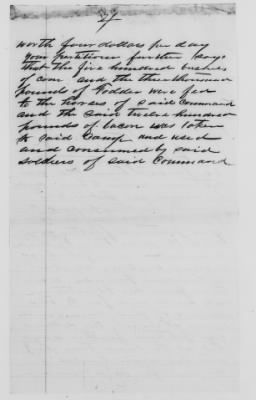 27
worth four dollars per day
your Petitioner further says
that the five hundred bushels
of corn and the three thousand
pounds of Fodder were fed
to the horses of said Command
and the said twelve hundred
pounds of bacon was taken
to said Camp and used
and consumed by said
soldiers of said Command